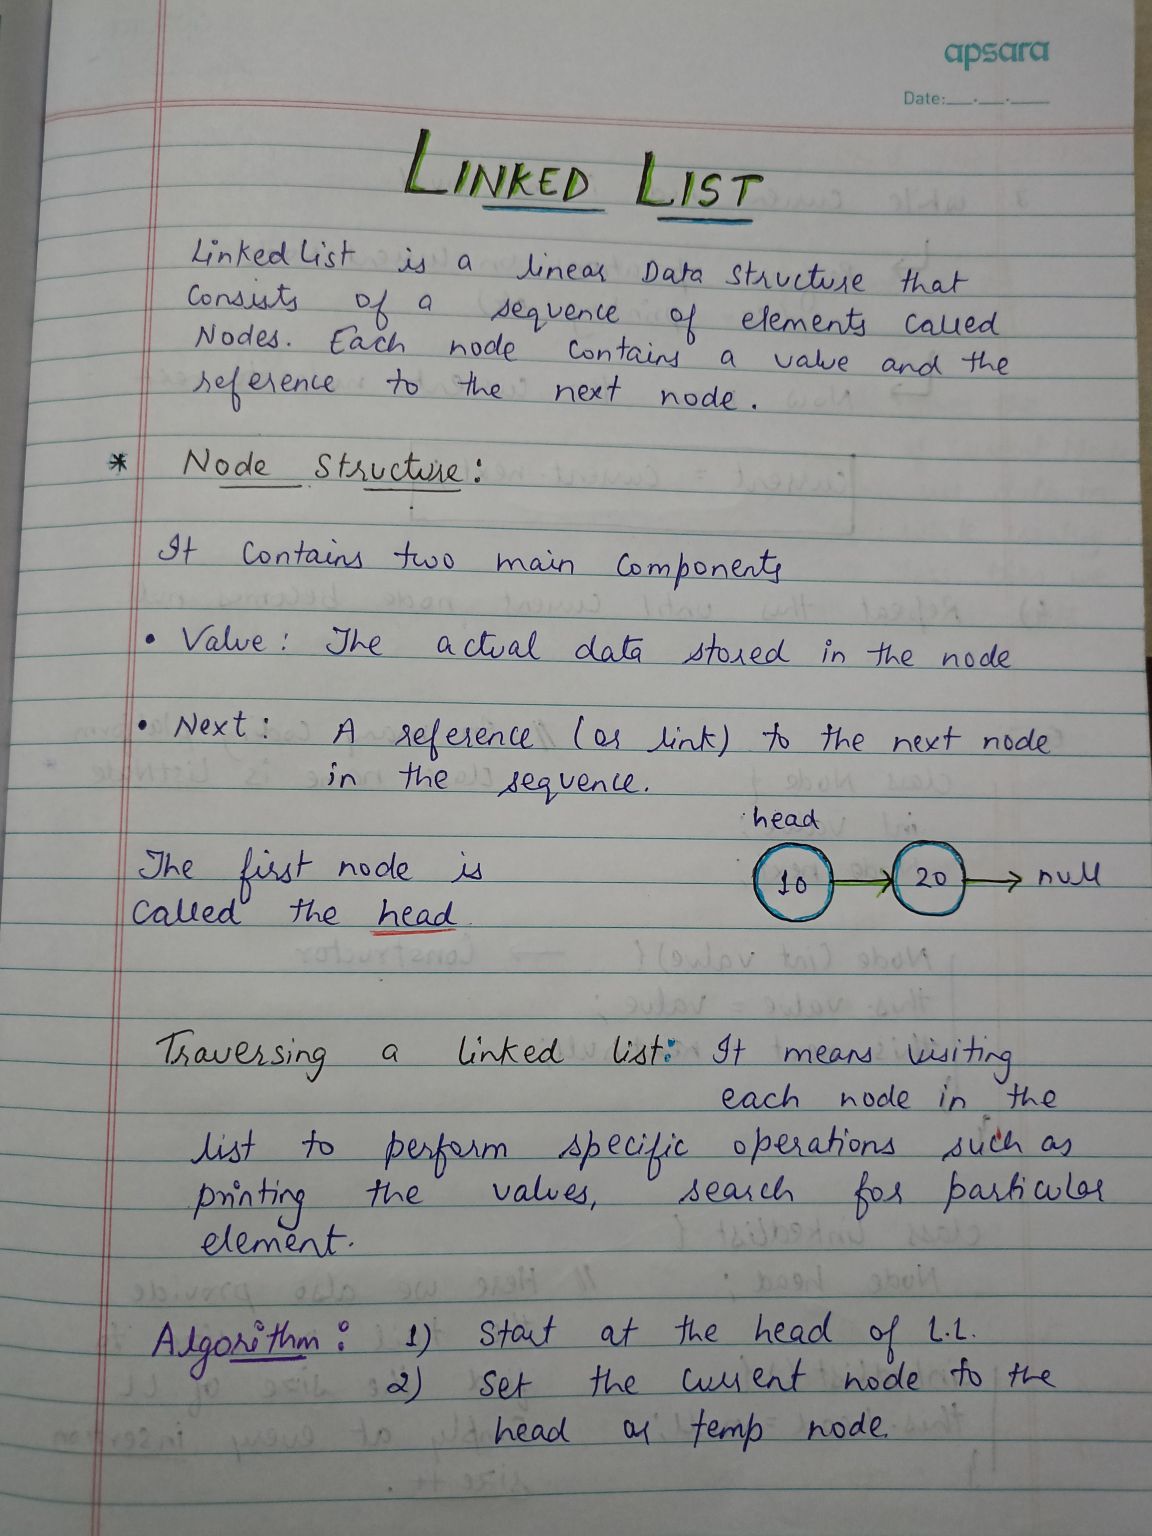 apsara
Date:__.__.__
LINKED LIST
Linked List is a linear Data Structure that
consists of a sequence of elements called
Nodes. Each node contains a value and the
reference to the next node.
* Node Structure:
It contains two main components
• Value: The actual data stored in the node
• Next: A reference (or link) to the next node
in the sequence.
head
10 → 20 → null
The first node is
called the head
Traversing a linked list: It means visiting
each node in the
list to perform specific operations such as
printing the values, search for particular
element.
Algorithm: 1) Start at the head of L.L.
2) Set the current node to the
head or temp node.